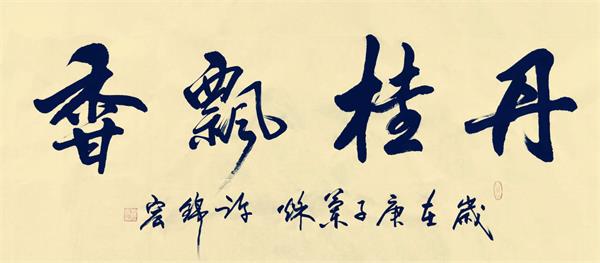 丹桂飄香
歲在庚子秋 许錦宏